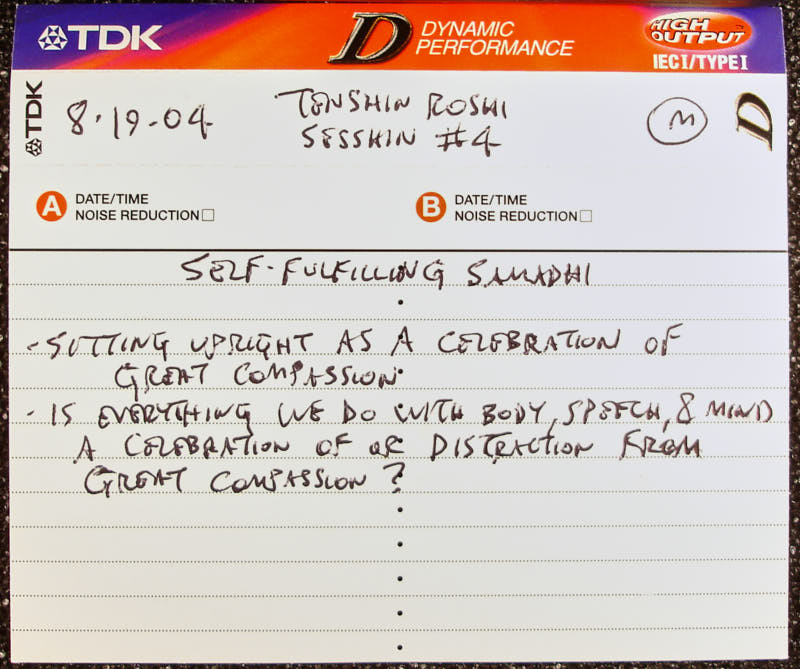 TDK
D DYNAMIC PERFORMANCE
HIGH OUTPUT
IEC I/TYPE I
TDK
8-19-04
TENSHIN ROSHI
SESSHIN #4
M
D
A DATE/TIME
NOISE REDUCTION
B DATE/TIME
NOISE REDUCTION
SELF-FULFILLING SAMADHI
- SITTING UPRIGHT AS A CELEBRATION OF
GREAT COMPASSION.
- IS EVERYTHING WE DO WITH BODY, SPEECH, & MIND
A CELEBRATION OF OR DISTRACTION FROM
GREAT COMPASSION?